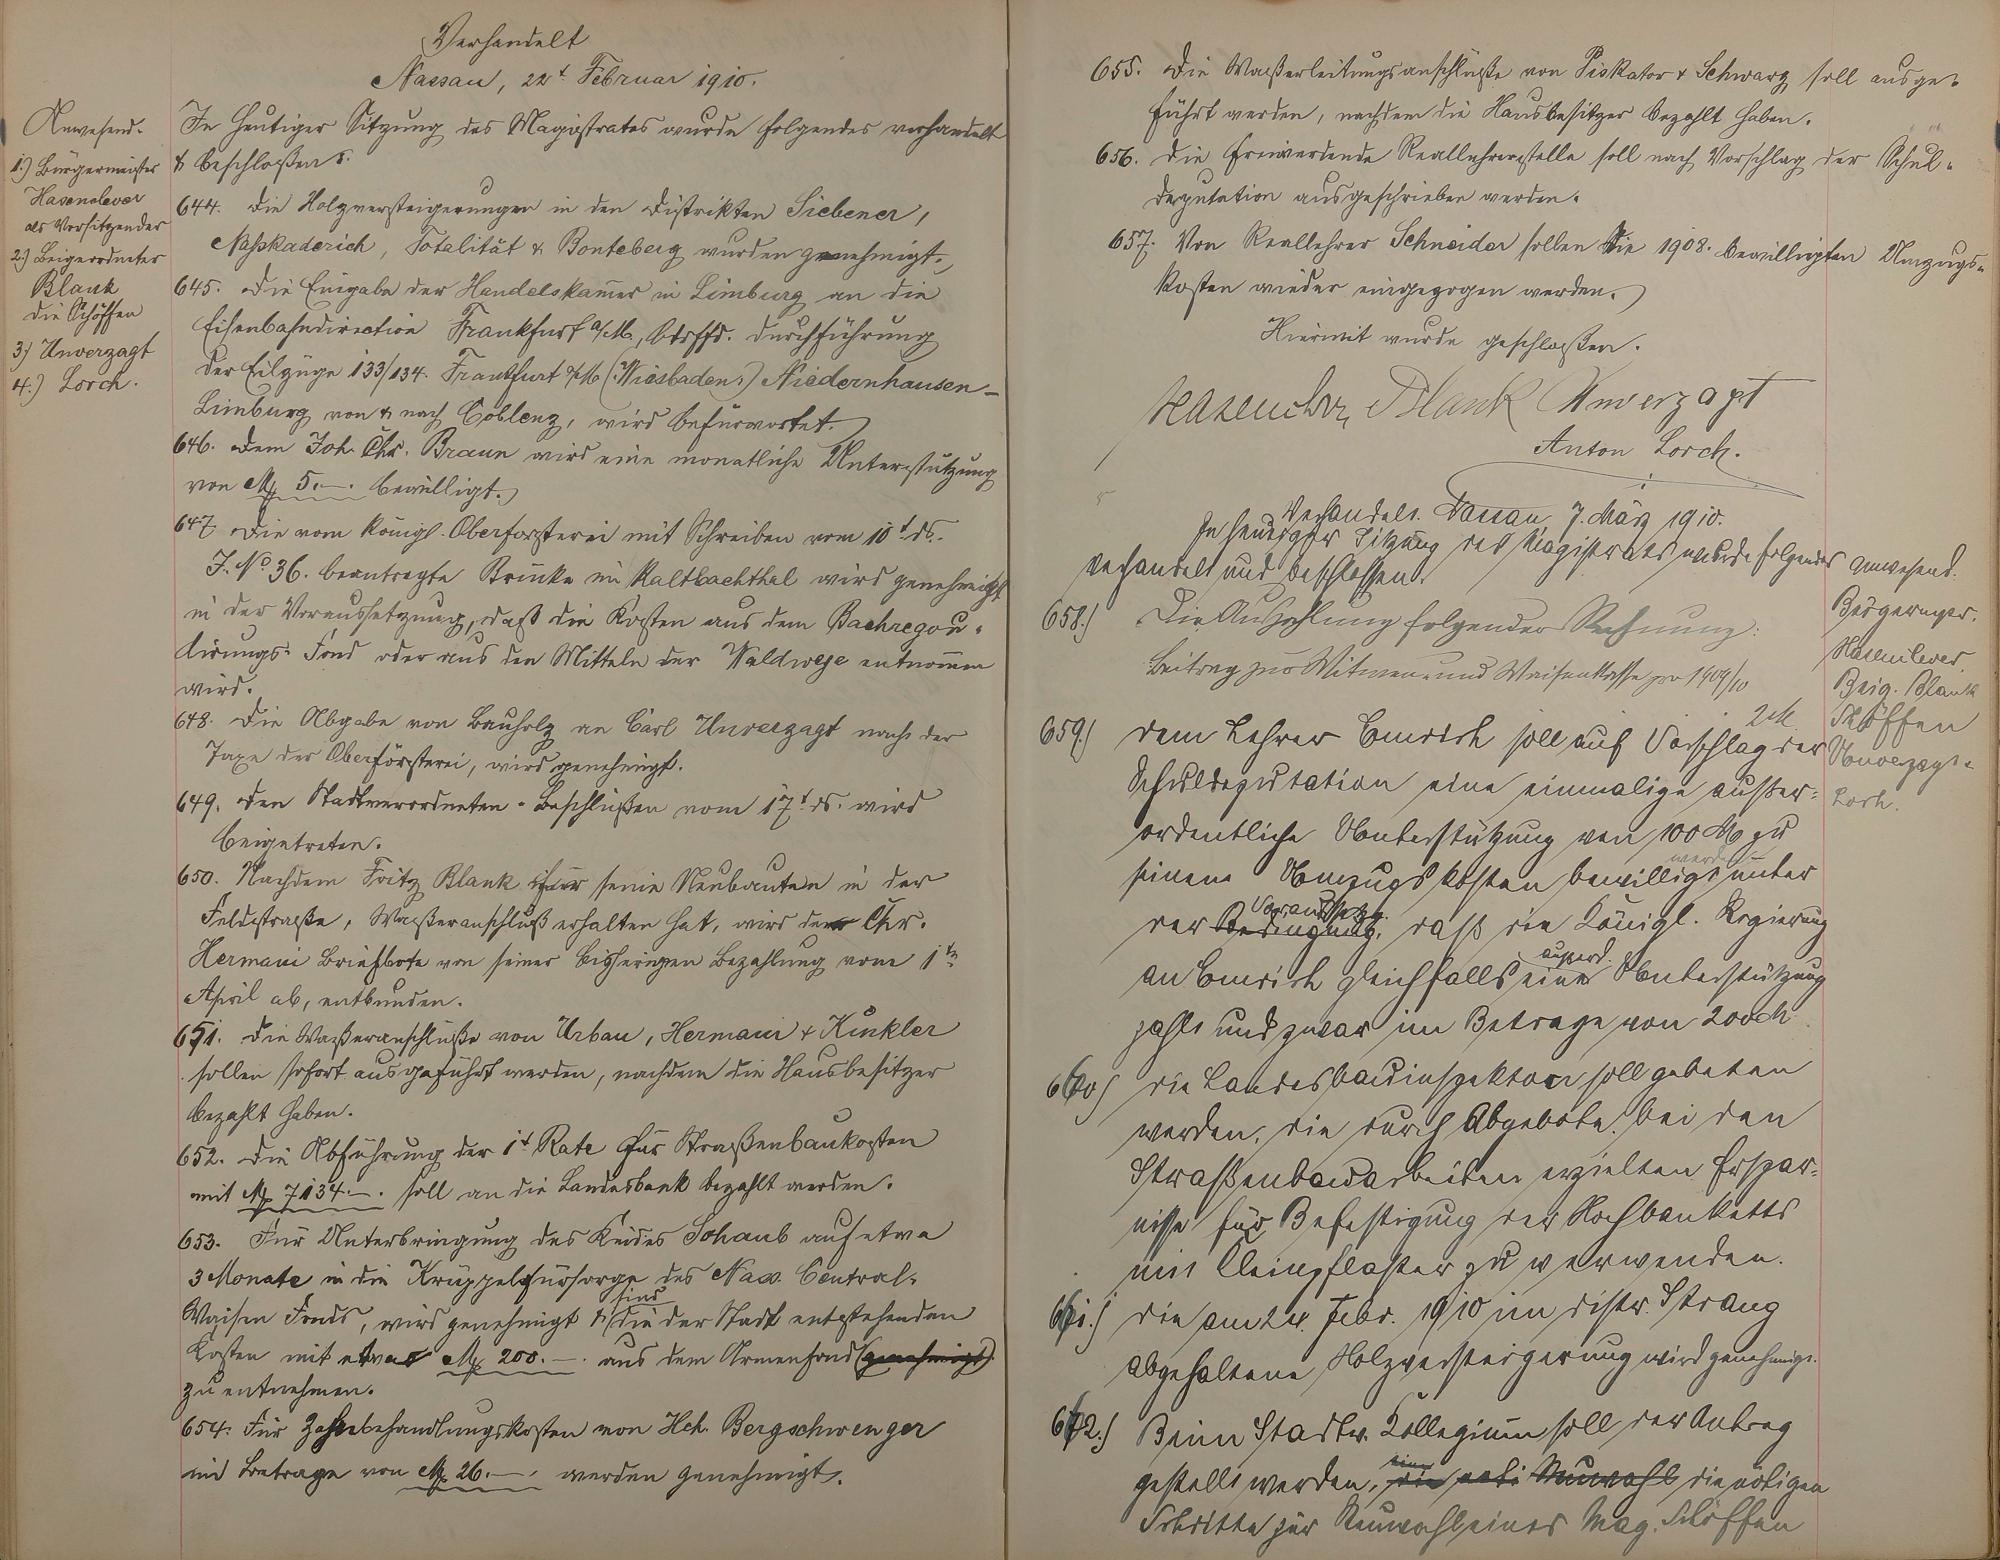 Verhandelt
Nassau, 22t Februar 1910.
Anwesend.
1.) Bürgermeister
Hasenclever
als Vorsitzender
2.) Beigeordneter
Blank
die Schöffen
3.) Unverzagt
4.) Lorch.
In heutiger Sitzung des Magistrates wurde folgendes verhandelt
& beschloßen:
644. Die Holzversteigerungen in den Distrikten Siebener,
Naßkaderich, Totalität & Bonteberg wurden genehmigt.
645. Die Eingabe der Handelskam̅er in Limburg an die
Eisenbahndirection Frankfurt a/M, btrffd. Durchführung
der Eilzüge 133/134. Frankfurt a/M (Wiesbaden) Niedernhausen-
Limburg von & nach Coblenz, wird befürwortet.
646. Dem Joh. Chr. Braun wird eine monatliche Unterstützung
von M 5.—. bewilligt.
647 Die vom Königl. Oberforsterei mit Schreiben vom 10t ds.
J. No 36. beantragte Brücke im Kaltbachthal wird genehmigt
in der Voraussetzung, daß die Kosten aus dem Bachregou-
lirungs-Fond oder aus den Mitteln der Waldwege entnom̅en
wird.
648. Die Abgabe von Bauholz an Carl Unverzagt nach der
Taxe der Oberförsterei, wird genehmigt.
649. Den Stadtverordneten-Beschlüßen vom 17t ds. wird
beigetreten.
650. Nachdem Fritz Blank für seine Neubauten in der
Feldstraße, Waßeranschluß erhalten hat, wird der Chr.
Hermani Briefbote von seiner bisherigen Bezahlung vom 1ten
April ab, entbunden.
651. Die Waßeranschlüße von Urban, Hermani & Kinkler
sollen sofort ausgeführt werden, nachdem die Hausbesitzer
bezahlt haben.
652. Die Abführung der 1t Rate für Straßenbaukosten
mit M 7134.—. soll an die Landesbank bezahlt werden.
653. Für Unterbringung des Kindes Schaub auf etwa
3 Monate in die Krüppelfürsorge des Nass. Central-
Waisen Fonds, wird genehmigt & sind die der Stadt entstehenden
Kosten mit etwa M 200.—. aus dem Armenfond (genehmigt)
zu entnehmen.
654. Für Zahnbehandlungskosten von Hch. Bergschwenger
im Betrage von M 26.—. werden genehmigt.
655. Die Waßerleitungsanschlüße von Piskator & Schwarz soll ausge-
führt werden, nachdem die Hausbesitzer bezahlt haben.
656. Die freiwerdende Reallehrerstelle soll nach Vorschlag der Schul-
deputation ausgeschrieben werden.
657. Von Reallehrer Schneider sollen die 1908. bewilligten Umzugs-
kosten wieder eingezogen werden.
Hiermit wurde geschloßen.
Hasenclever Blank Unverzagt
Anton Lorch.
Verhandelt. Nassau, 7. März 1910.
In heutiger Sitzung des Magistrats wurde folgendes
verhandelt und beschlossen.
Anwesend.
Bürgermstr.
Hasenclever.
Beig. Blank
Schöffen
Unverzagt
Lorch.
658.) Die Auszahlung folgender Rechnung:
Beitrag zur Witwen- und Waisenkasse pro 1909/10
2 M
659.) Dem Lehrer Emrich soll auf Vorschlag der
Schuldeputation eine einmalige außer-
ordentliche Unterstützung von 100 M zu
seinen Umzugskosten bewilligt werden unter
der Bedingung, Voraussetzg. daß die Königl. Regierung
an Emrich gleichfalls eine außerd. Unterstützung
zahlt und zwar im Betrage von 200 M
660) Die Landesbauinspektion soll gebeten
werden, die durch Abgebote bei den
Straßenbauarbeiten erzielten Erspar-
nisse für Befestigung der Hochbanketts
mit Kleinpflaster zu verwenden.
661.) Die am 24. Febr. 1910 im Distr. Strang
abgehaltene Holzversteigerung wird genehmigt.
662.) Beim Stadtv. Kollegium soll der Antrag
gestellt werden, die Neuwahl die nötigen
Schritte zur Neuwahl eines Mag. Schöffen